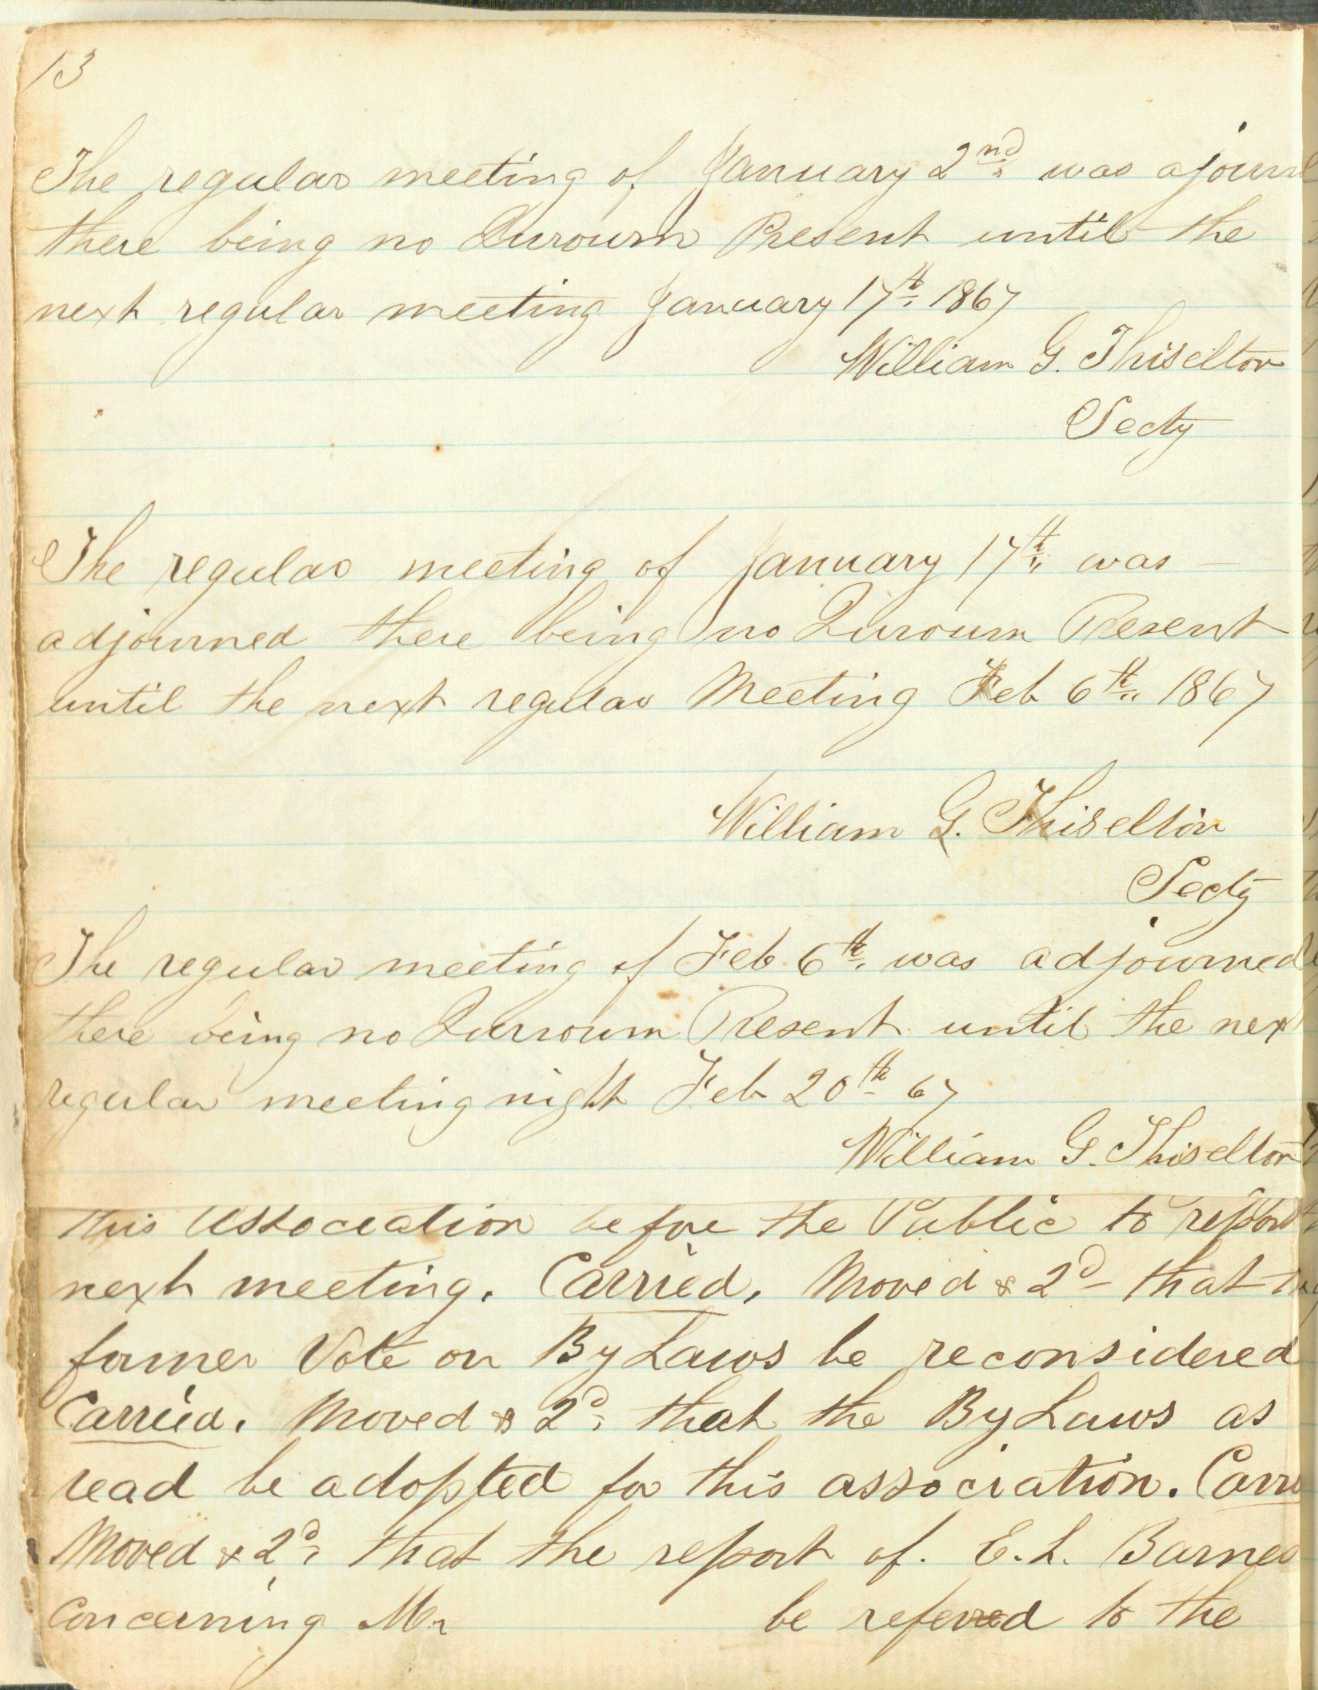 13
The regular meeting of January 2nd was ajourn
there being no Quroum Present until the
next regular meeting January 17th 1867
William G. Thiselton
Secty
The regular meeting of January 17th was —
adjourned there being no Quroum Present
until the next regular Meeting Feb 6th 1867
William G. Thiselton
Secty
The regular meeting of Feb 6th was adjourned
there being no Qurroum Present until the nex
regular meeting night Feb 20th 67
William G. Thiselton
this Association before the Public to report
next meeting. Carried. Moved & 2d that
former Vote on By Laws be reconsidered
Carried. Moved & 2d that the By Laws as
read be adopted for this association. Carri
Moved & 2d that the report of. E. L. Barnes
Concerning Mr be refered to the